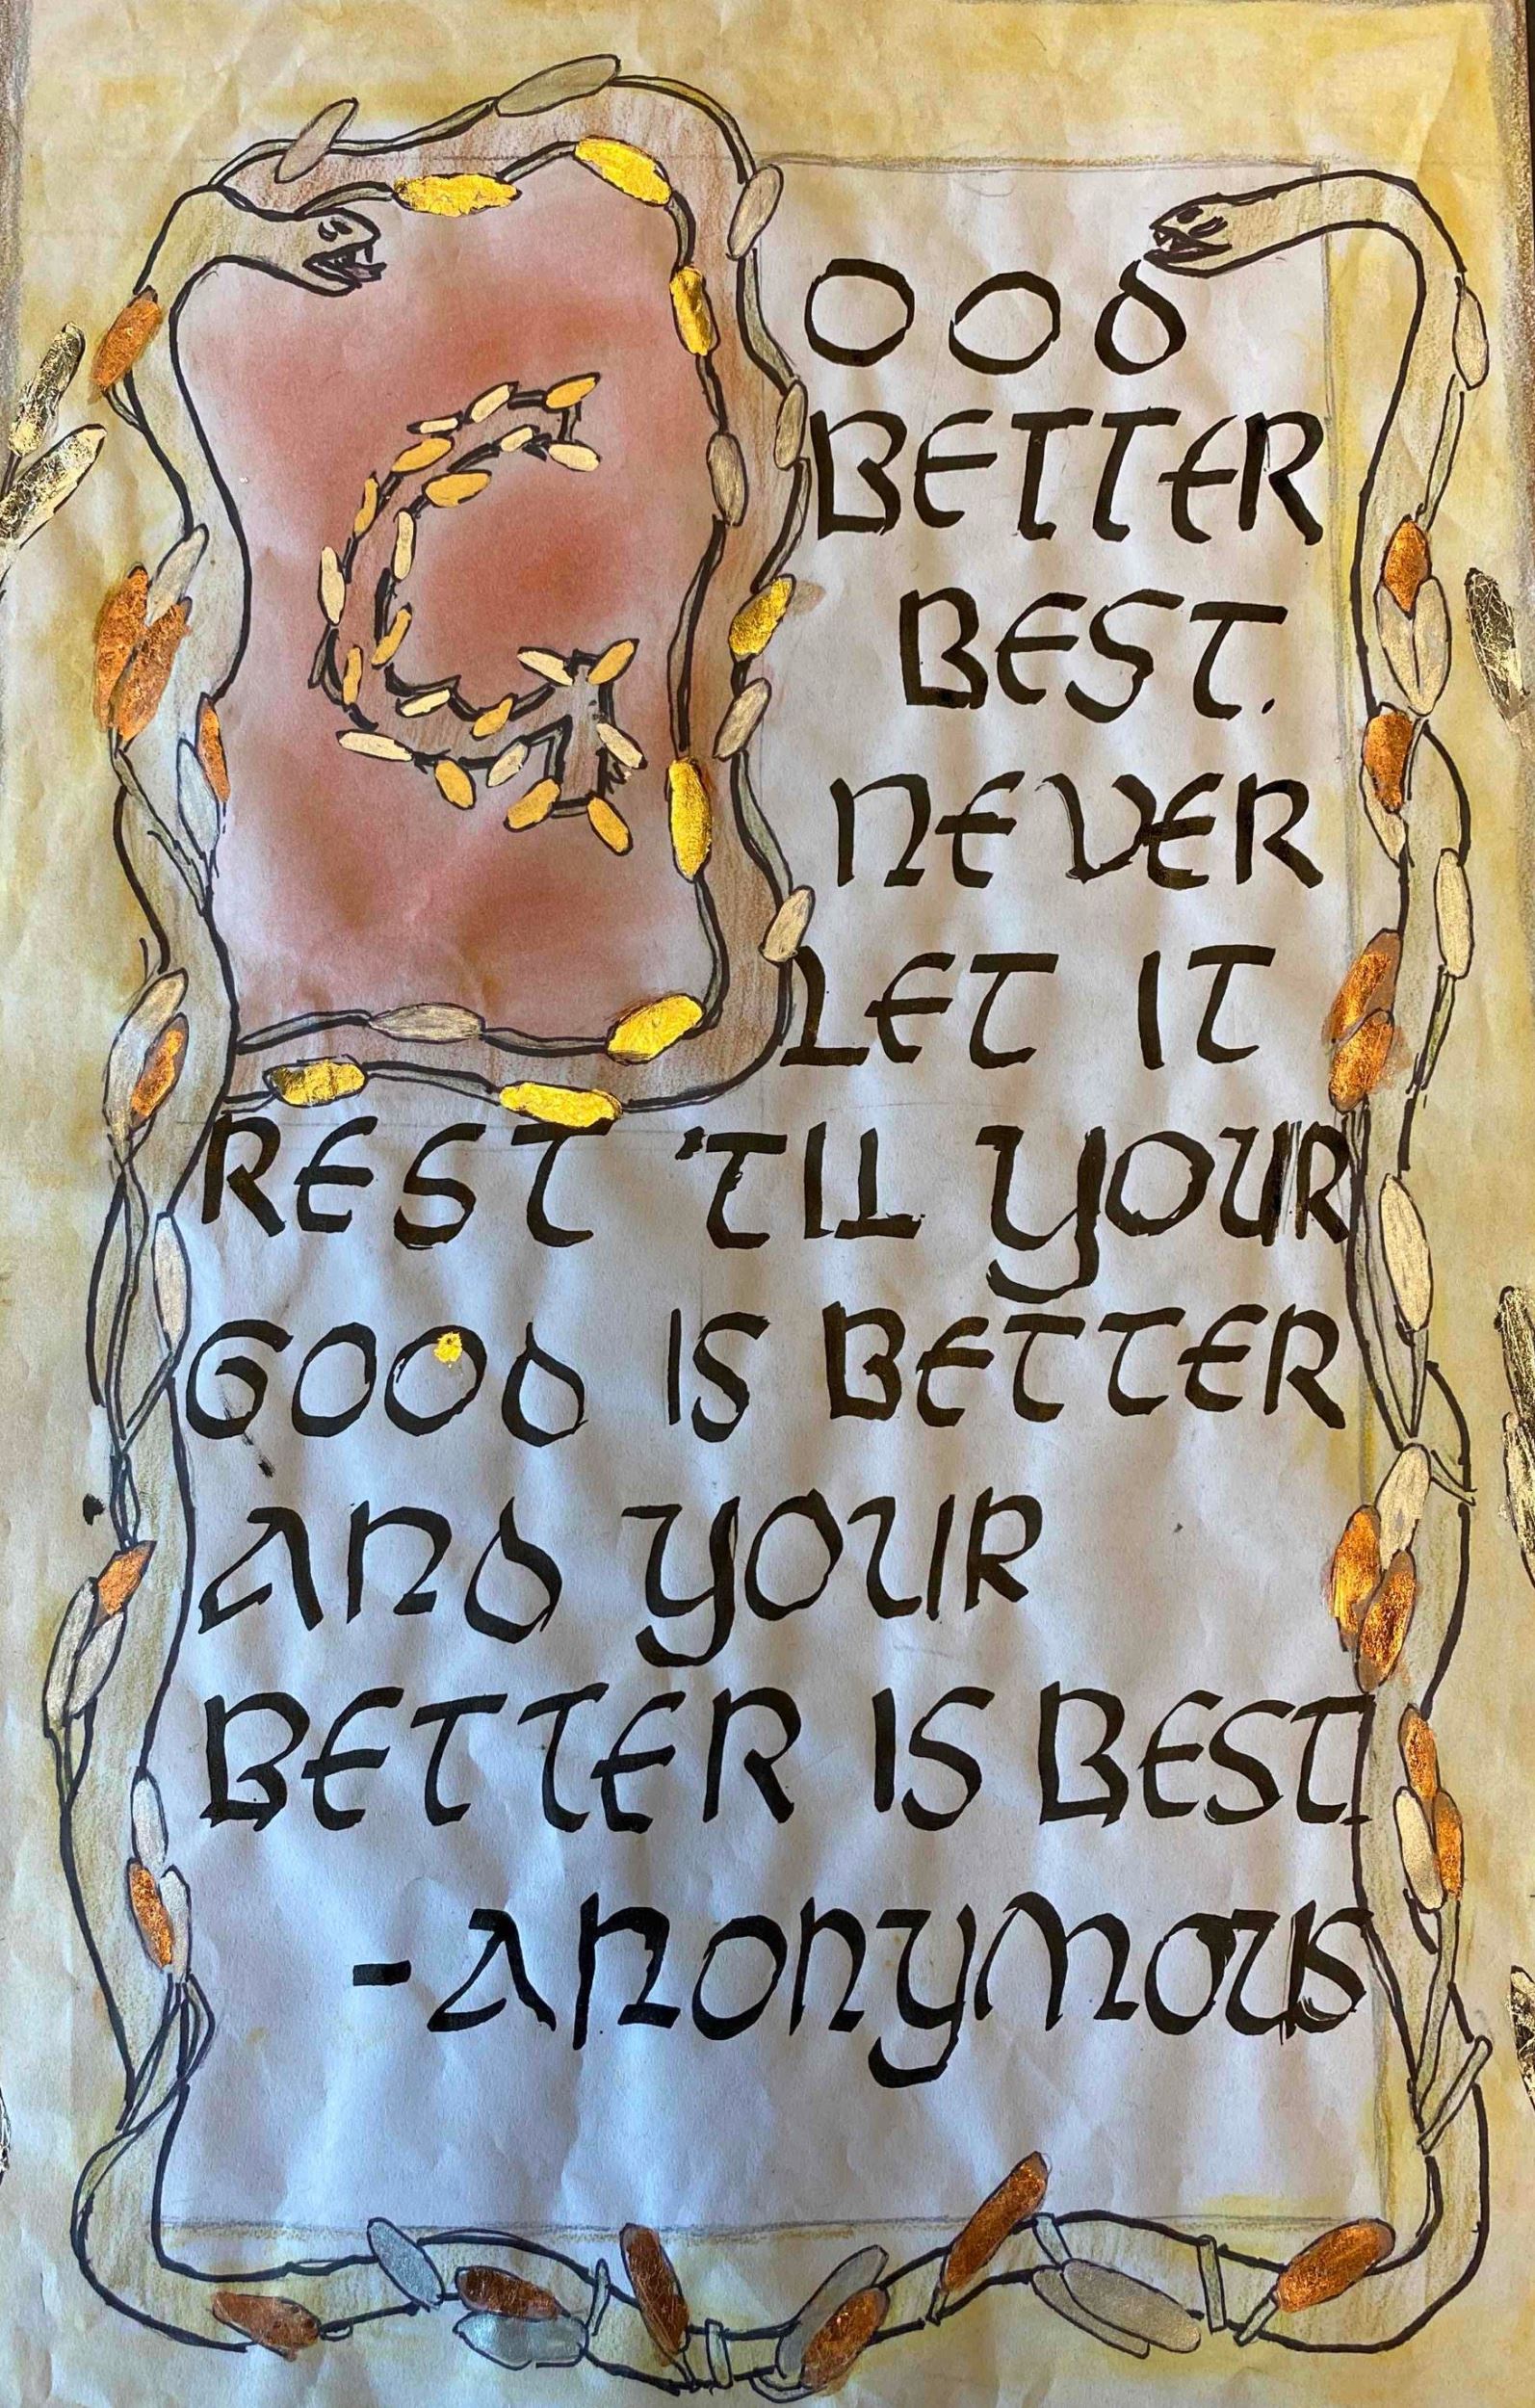 GOOD
BETTER
BEST.
NEVER
LET IT
REST 'TIL YOUR
GOOD IS BETTER
AND YOUR
BETTER IS BEST.
-ANONYMOUS